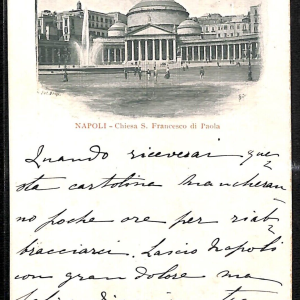 NAPOLI - Chiesa S. Francesco di Paola
Quando riceverai que
sta cartolina mancheran
no poche ore per riab
bracciarci. Lascio Napoli
con gran dolore ma